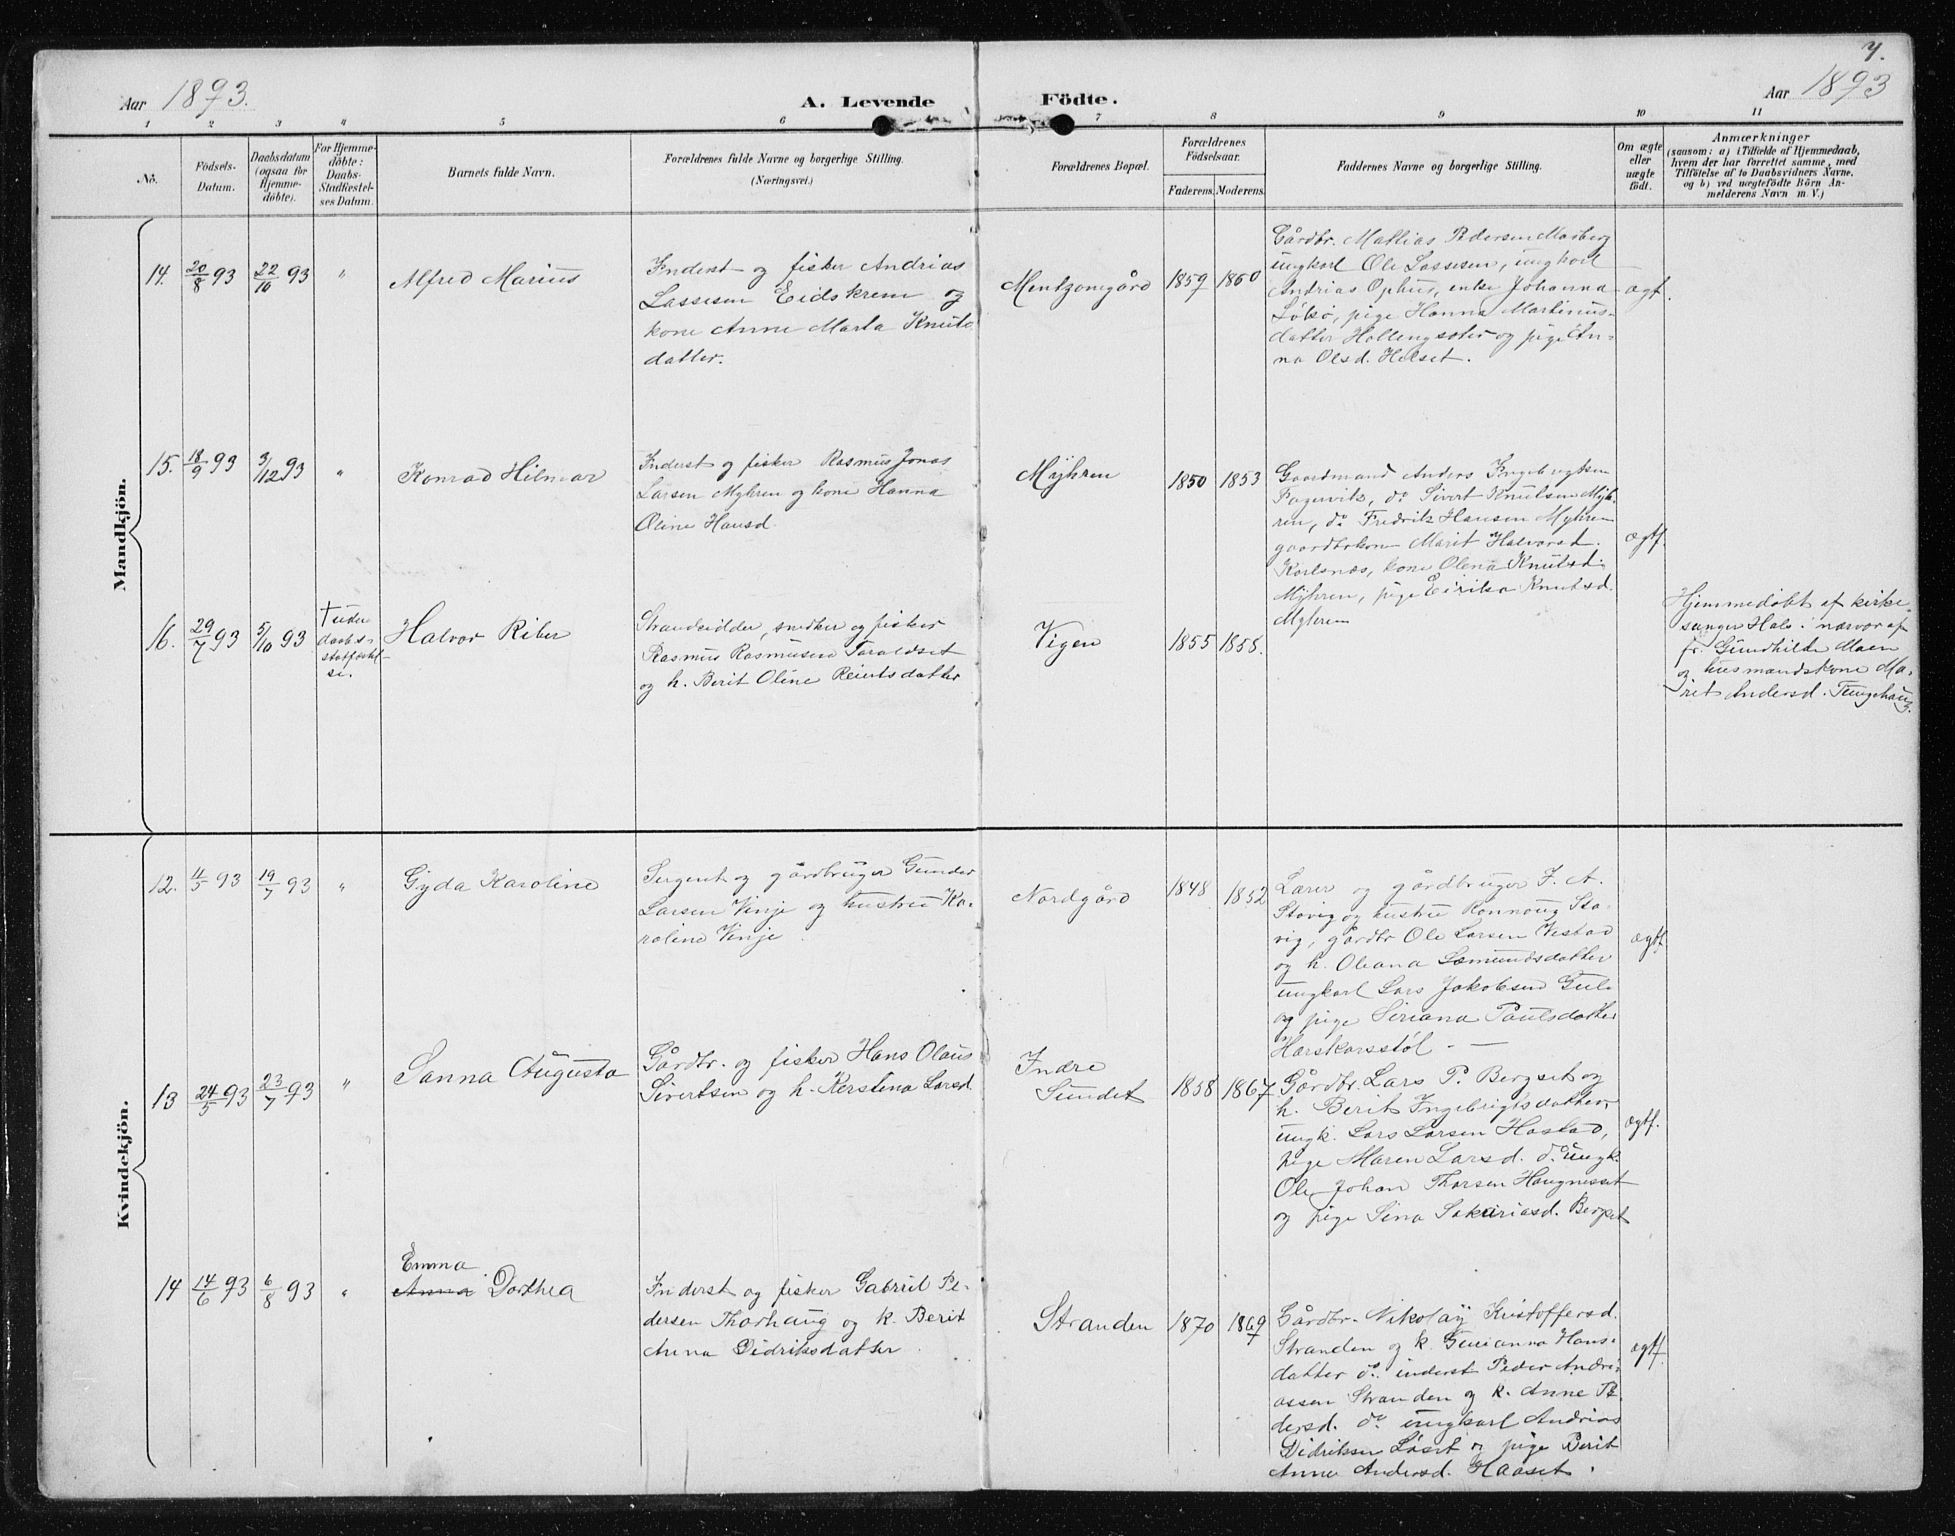 7.
Aar 1893.
A. Levende Födte.
Aar 1893
1 2 3 4 5 6 7 8 9 10 11
No.
Födsels-
Datum.
Daabsdatum
(ogsaa for
Hjemme-
döbte).
For Hjemme-
döbte:
Daabs-
Stadfæstel-
ses Datum.
Barnets fulde Navn.
Forældrenes fulde Navne og borgerlige Stilling.
(Næringsvei.)
Forældrenes Bopæl.
Forældrenes
Födselsaar.
Faderens. Moderens.
Faddernes Navne og borgerlige Stilling.
Om ægte
eller
uægte
födt.
Anmærkninger
(saasom: a) i Tilfælde af Hjemmedaab,
hvem der har forrettet samme, med
Tilföielse af to Daabsvidners Navne,
og b) ved uægtefödte Börn An-
melderens Navn m. V.)
Mandkjön.
14. 20/8 93 22/10 93 "
Alfred Marius
Inderst og fisker Andrias
Lassesen Eidskrem og
kone Anne Marta Knuts
datter.
Mentzonegård
1859 1860
Gårdbr. Mathias Pedersen
ungkarl Ole Lassesen, ungkarl
Andrias Ophus, enke Johanna
pige Hanna Martinus-
datter og pige An-
na Olsd. Helset.
ægt.
15. 18/9 93 3/12 93 "
Konrad Hilmar
Inderst og fisker Rasmus Jonas
Larsen Myhren og kone Hanna
Oline Hansd.
Myhren
1850 1853
Gaardmand Anders Ingebrigtsen
Fagervik, do Sivert Knutsen Myh-
ren, do Fredrik Hansen Myhren
gaardbrkone Marit Halvorsd.
Karlsnæs, kone Olena Knutsd.
Myhren, pige Eirika Knutsd.
Myhren
ægtf.
16. 29/7 93 5/10 93
† uden
daabs-
statfæstel-
se.
Halvor Riber
Strandsidder, snedker og fisker
Rasmus Rasmussen Taraldset
og h. Berit Oline Reiertsdatter
Vigen
1855 1858.
Hjemmedöbt af kirke-
sanger Hals i nærvær af
fr. Gundhilde Moen
og husmandskone Ma-
rit Andersd. Tungehaug.
Kvindekjön.
12. 4/5 93 19/7 93 "
Gyda Karoline
Sergent og gårdbruger Gunder
Larsen Vinje og hustru Ka-
roline Vinje.
Nordgård
1848 1852
Lærer og gårdbruger I. A.
Stavig og hustru Rønnoug Sta-
vig, gårdbr Ole Larsen Vestad
og h. Oleana Sæmundsdatter
ungkarl Lars Jakobsen Gule
og pige Siriana Paulsdatter
Harskarsstöl. —
ægtf.
13 24/5 93 23/7 93 "
Sanna Augusta
Gårdbr. og fisker Hans Olaus
Sivertsen og h. Kerstina Larsd
Indre
Sundet
1858 1867
Gårdbr. Lars P. Bergset og
h. Berit Ingebrigtsdatter,
ungk. Lars Larsen Hastad,
pige Maren Larsd. do ungk.
Ole Johan Thorsen Haugnesset
og pige Sina Sakariasd. Bergset
ægtf.
Emma
14 14/6 93 6/8 93 "
Anna Dorthea
Inderst og fisker Gabriel Pe-
dersen Thorhaug og k. Berit
Anna Didriksdatter
Stranden
1870 1869
Gårdbr. Nikolay Kristoffersd.
Stranden og k. Gurianna Hans-
datter do. inderst Peder Andri-
assen Stranden og k. Anne Pe
dersd. do ungkarl Andrias
Didriksen Löset og pige Berit
Anne Andersd. Haaset.
ægtf.